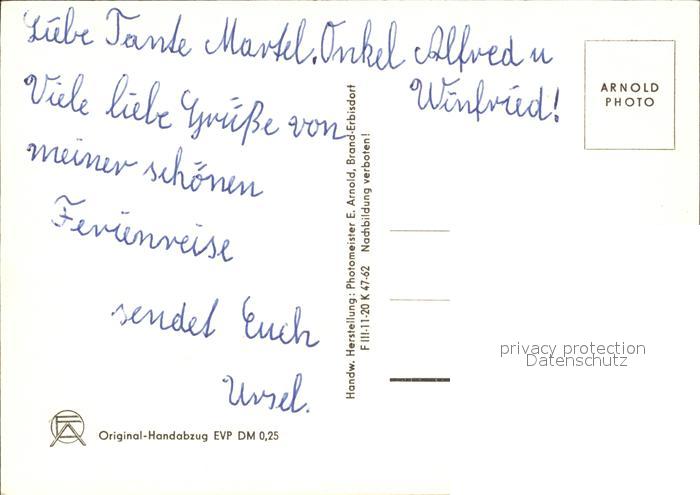 Liebe Tante Martel, Onkel Alfred u
Winfried!
Viele liebe Grüße von
meiner schönen
Ferienreise
sendet Euch
Ursel.
Original-Handabzug EVP DM 0,25
Handw. Herstellung: Photomeister E. Arnold, Brand-Erbisdorf
F III-11-20 K 47-62 Nachbildung verboten!
ARNOLD
PHOTO
privacy protection
Datenschutz